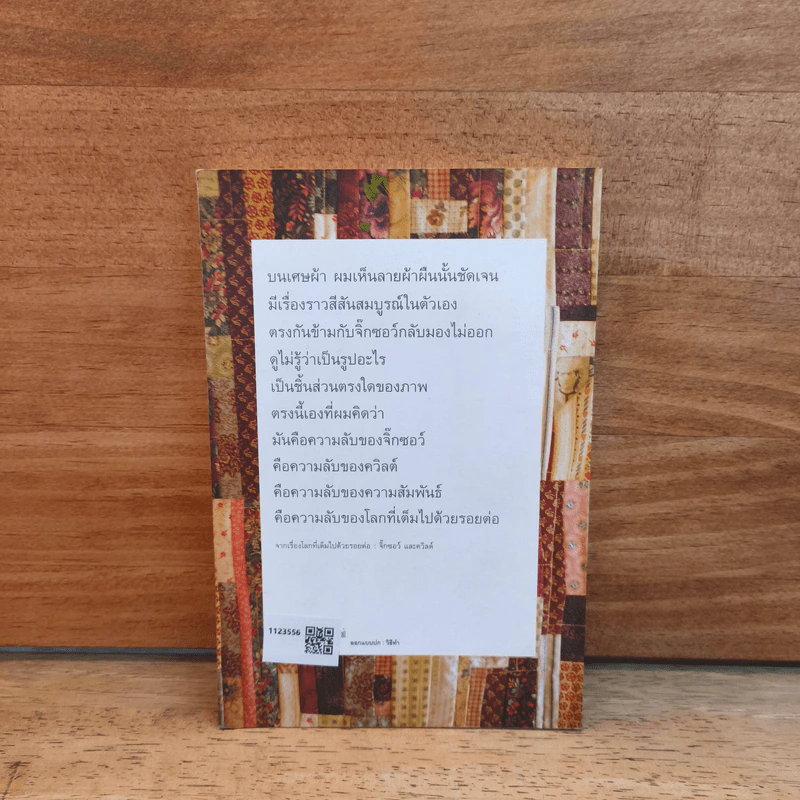 บนเศษผ้า ผมเห็นลายผ้าผืนนั้นชัดเจน
มีเรื่องราวสีสันสมบูรณ์ในตัวเอง
ตรงกันข้ามกับจิ๊กซอว์กลับมองไม่ออก
ดูไม่รู้ว่าเป็นรูปอะไร
เป็นชิ้นส่วนตรงใดของภาพ
ตรงนี้เองที่ผมคิดว่า
มันคือความลับของจิ๊กซอว์
คือความลับของควิลต์
คือความลับของความสัมพันธ์
คือความลับของโลกที่เต็มไปด้วยรอยต่อ
จากเรื่องโลกที่เต็มไปด้วยรอยต่อ : จิ๊กซอว์ และควิลต์
1123556
ออกแบบปก : วิธีทำ